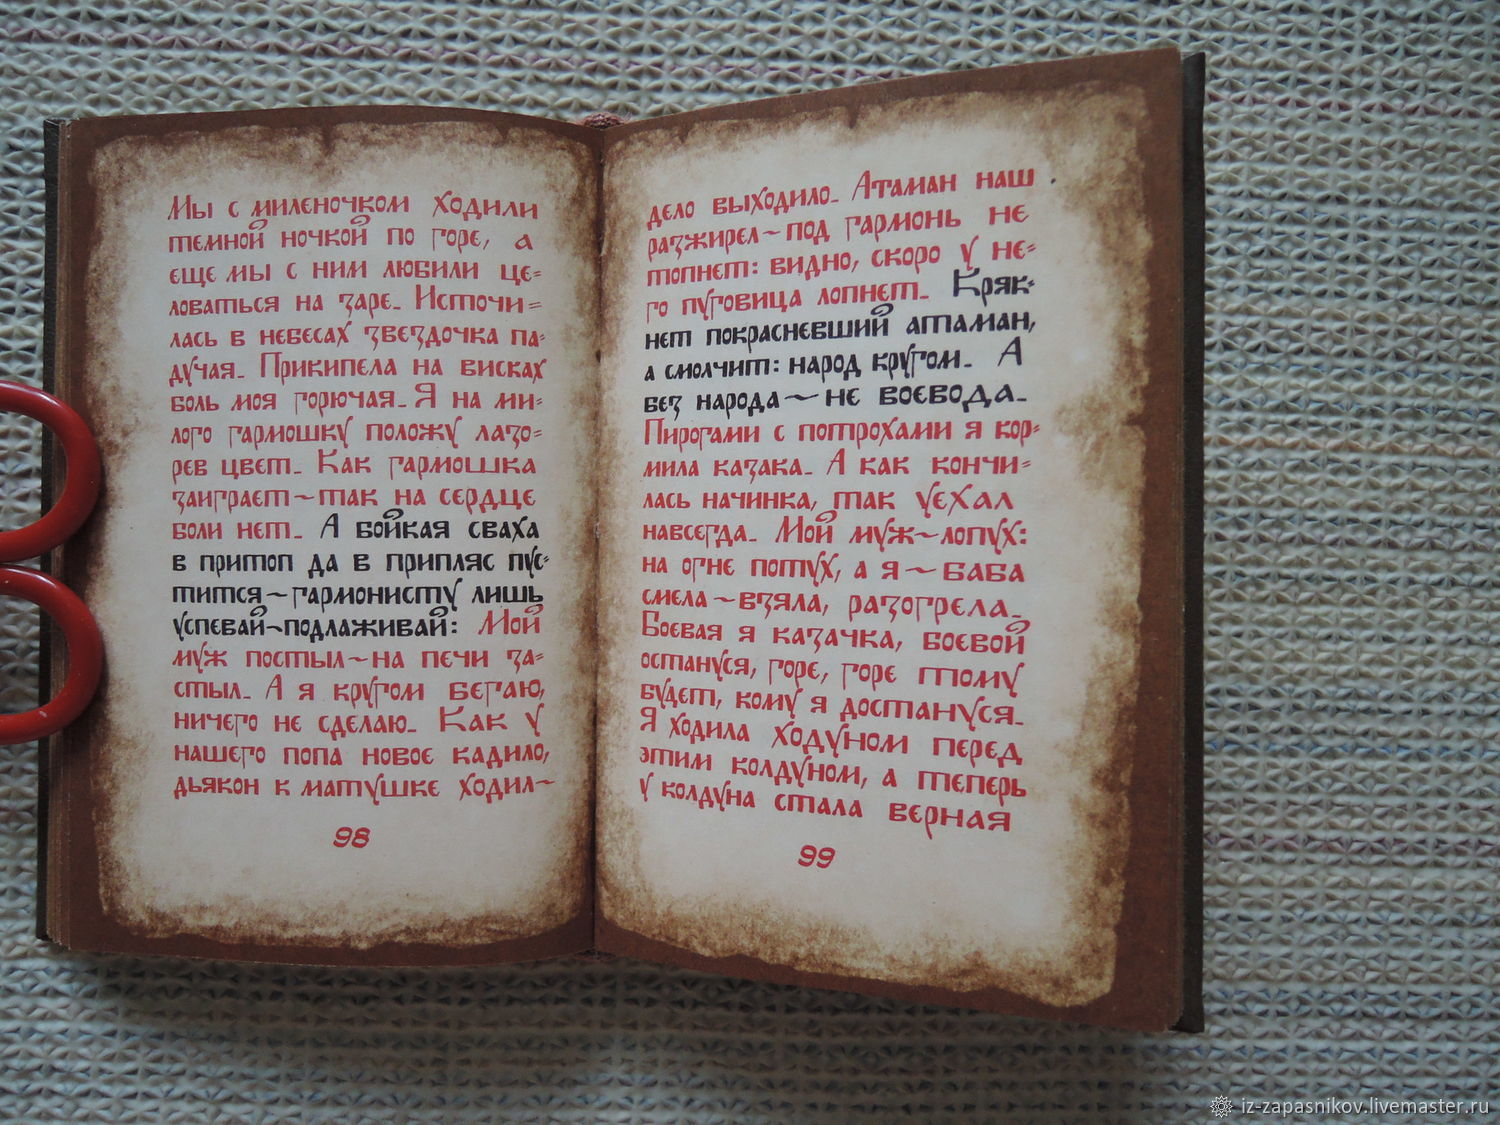 Мы с миленочком ходили
темной ночкой по горе, а
еще мы с ним любили це=
ловаться на заре. Источи=
лась в небесах звездочка па=
дучая. Прикипела на висках
боль моя горючая. Я на ми=
лого гармошку положу лазо=
рев цвет. Как гармошка
заиграет~так на сердце
боли нет. А бойкая сваха
в притоп да в припляс пус=
тится~гармонисту лишь
успевай~подлаживай: Мой
муж постыл~на печи за=
стыл. А я кругом бегаю,
ничего не сделаю. Как у
нашего попа новое кадило,
дьякон к матушке ходил~
98
дело выходило. Атаман наш
разжирел~под гармонь не
топнет: видно, скоро у не=
го пуговица лопнет. Кряк=
нет покрасневший атаман,
а смолчит: народ кругом. А
без народа~не воевода.
Пирогами с потрохами я кор=
мила казака. А как кончи=
лась начинка, так уехал
навсегда. Мой муж~лопух:
на огне потух, а я~баба
смела~взяла, разогрела.
Боевая я казачка, боевой
остануся, горе, горе тому
будет, кому я достануся.
Я ходила ходуном перед
этим колдуном, а теперь
у колдуна стала верная
99
iz-zapasnikov.livemaster.ru